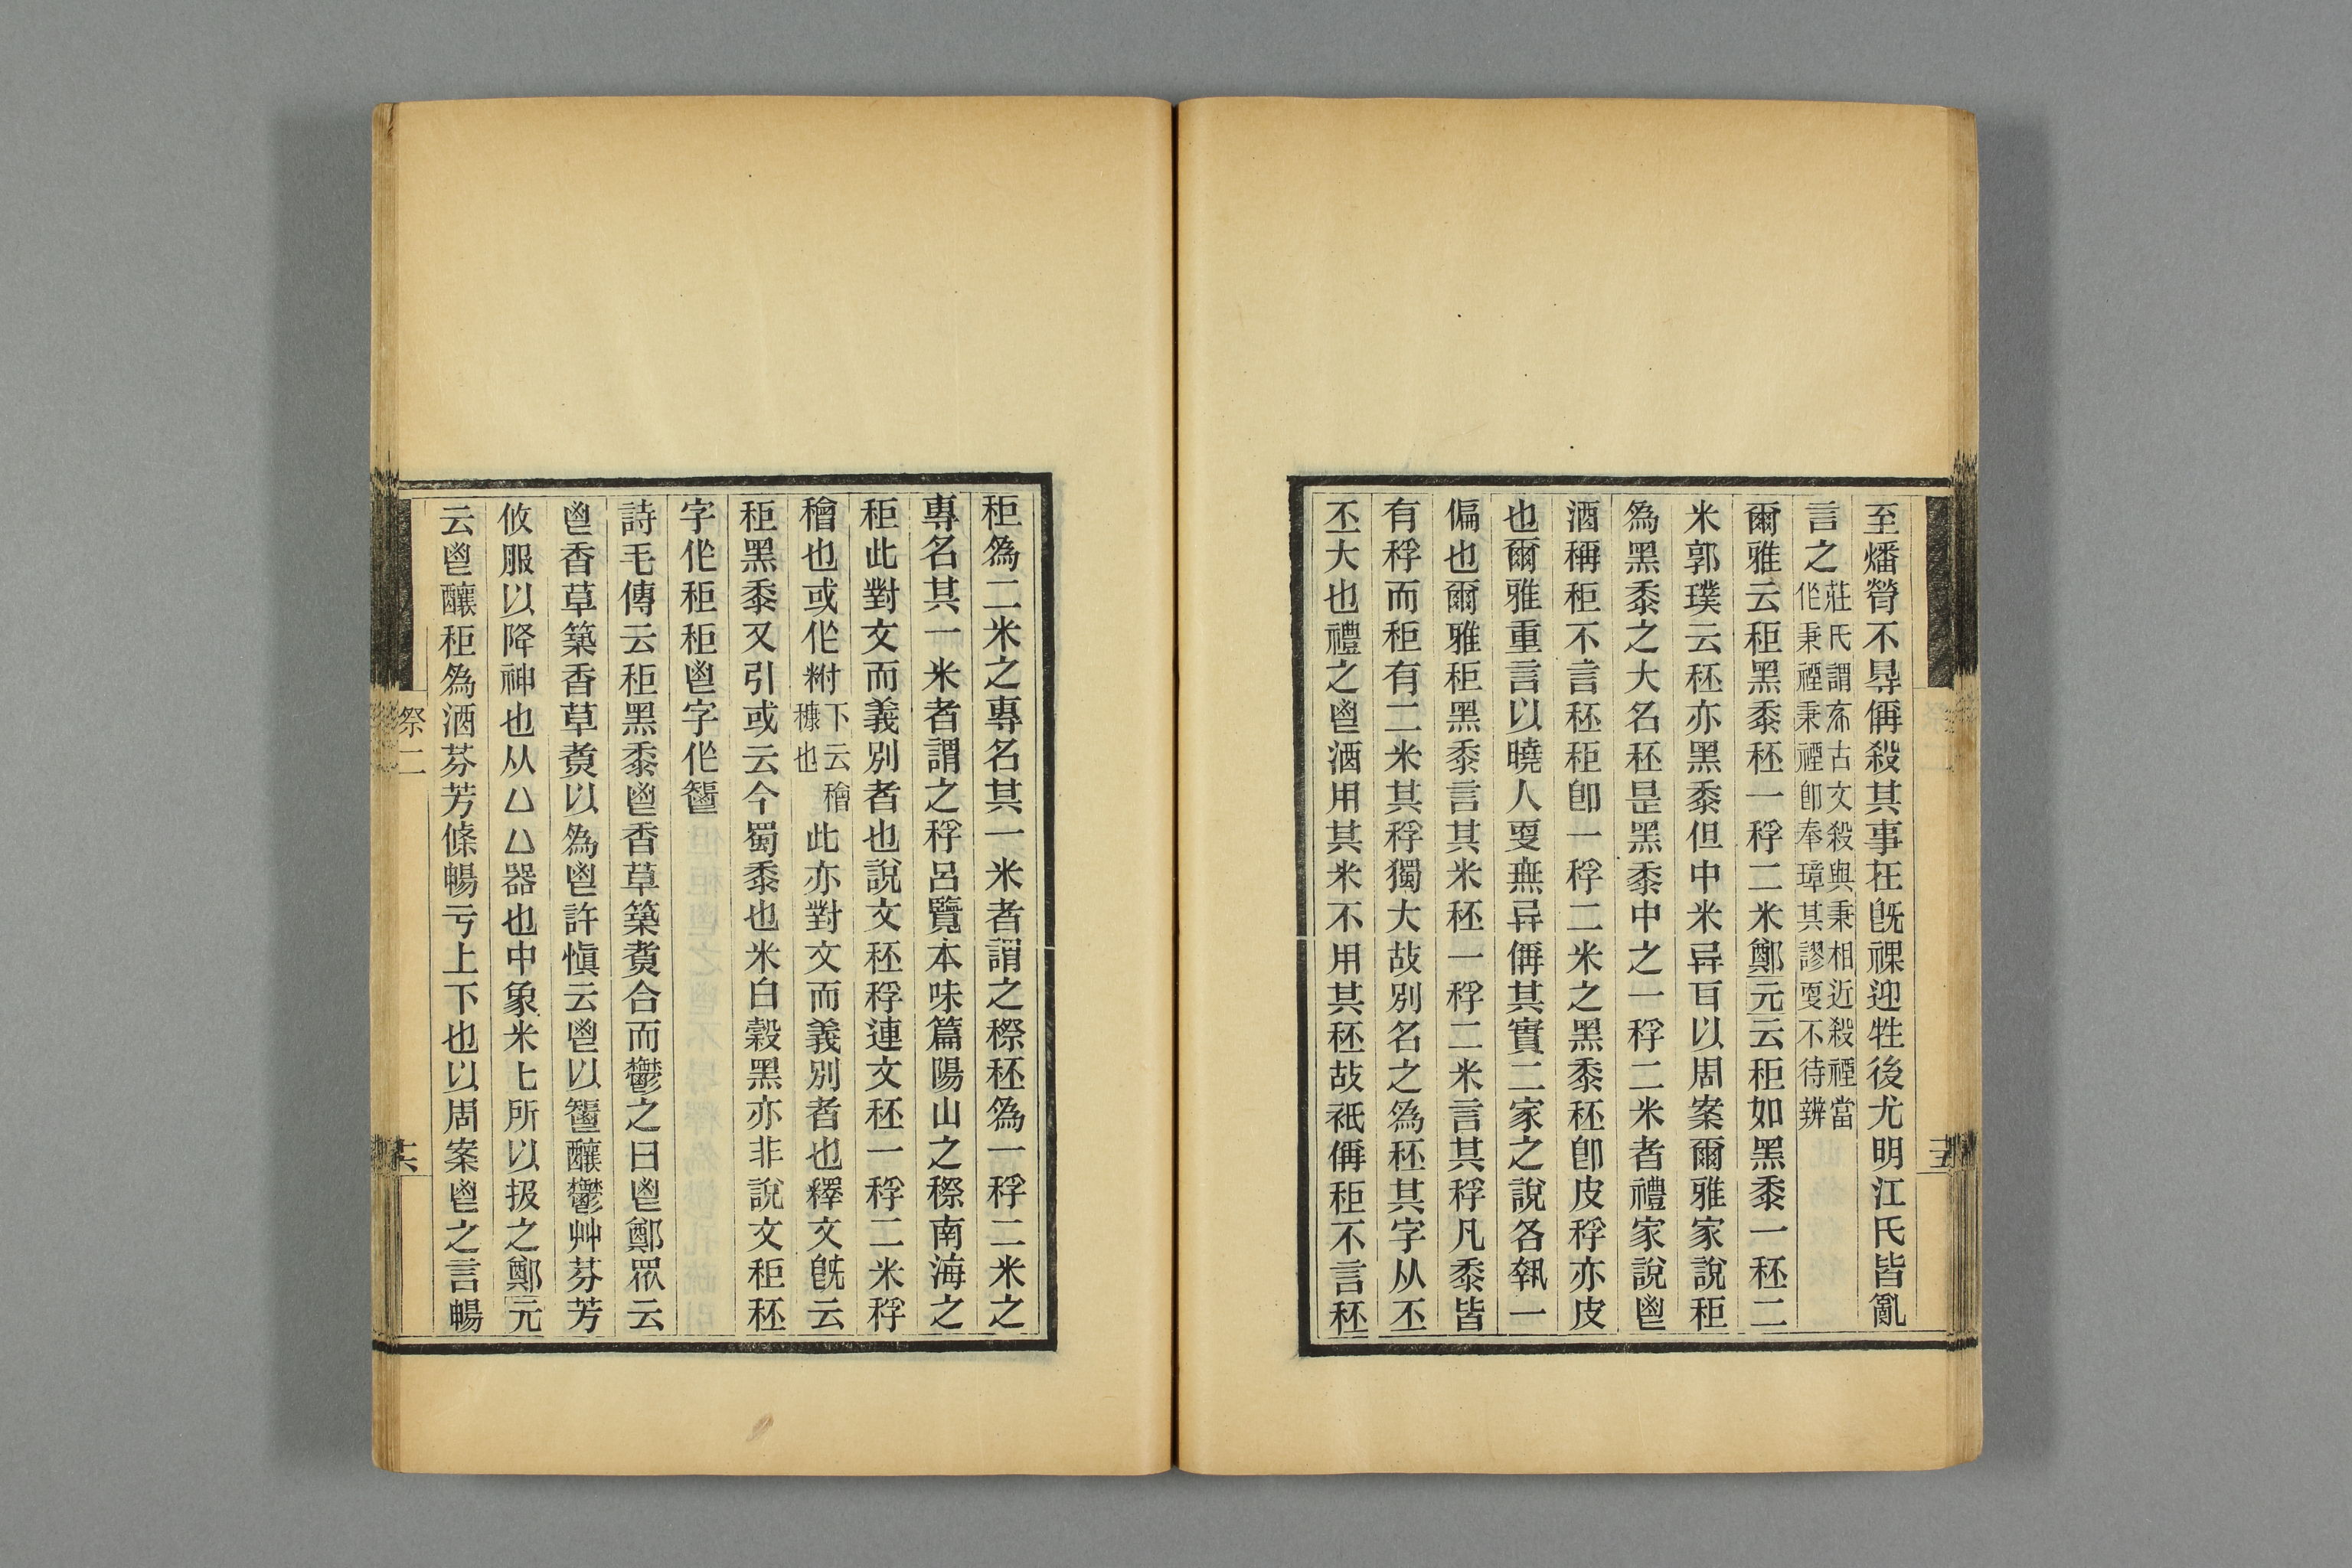 至燔膋不㝵偁殺其事在旣祼迎牲後尤明江氏皆亂
言之莊氏謂𣏂古文殺與秉相近殺禋當
作秉禋秉禋卽奉璋其謬㪅不待辨
爾雅云秬黑黍秠一稃二米鄭元云秬如黑黍一秠二
米郭璞云秠亦黑黍但中米异耳以周案爾雅家說秬
爲黑黍之大名秠是黑黍中之一稃二米者禮家說鬯
酒稱秬不言秠秬卽一稃二米之黑黍秠卽皮稃亦皮
也爾雅重言以曉人㪅無异偁其實二家之說各執一
偏也爾雅秬黑黍言其米秠一稃二米言其稃凡黍皆
有稃而秬有二米其稃獨大故別名之爲秠其字从丕
丕大也禮之鬯酒用其米不用其秠故祇偁秬不言秠
秬爲二米之專名其一米者謂之穄秠爲一稃二米之
專名其一米者謂之稃呂覽本味篇陽山之穄南海之
秬此對文而義別者也說文秠稃連文秠一稃二米稃
穭也或作粰下云穭
穅也此亦對文而義別者也釋文旣云
秬黑黍又引或云今蜀黍也米白穀黑亦非說文秬秠
字作秬秬鬯字作𩰤
詩毛傳云秬黑黍鬯香草築煑合而鬱之曰鬯鄭眾云
鬯香草築香草煑以爲鬯許愼云鬯以𩰤釀鬱艸芬芳
攸服以降神也从凵凵器也中象米匕所以扱之鄭元
云鬯釀秬爲酒芬芳條暢亏上下也以周案鬯之言暢
祭二
十六
十五